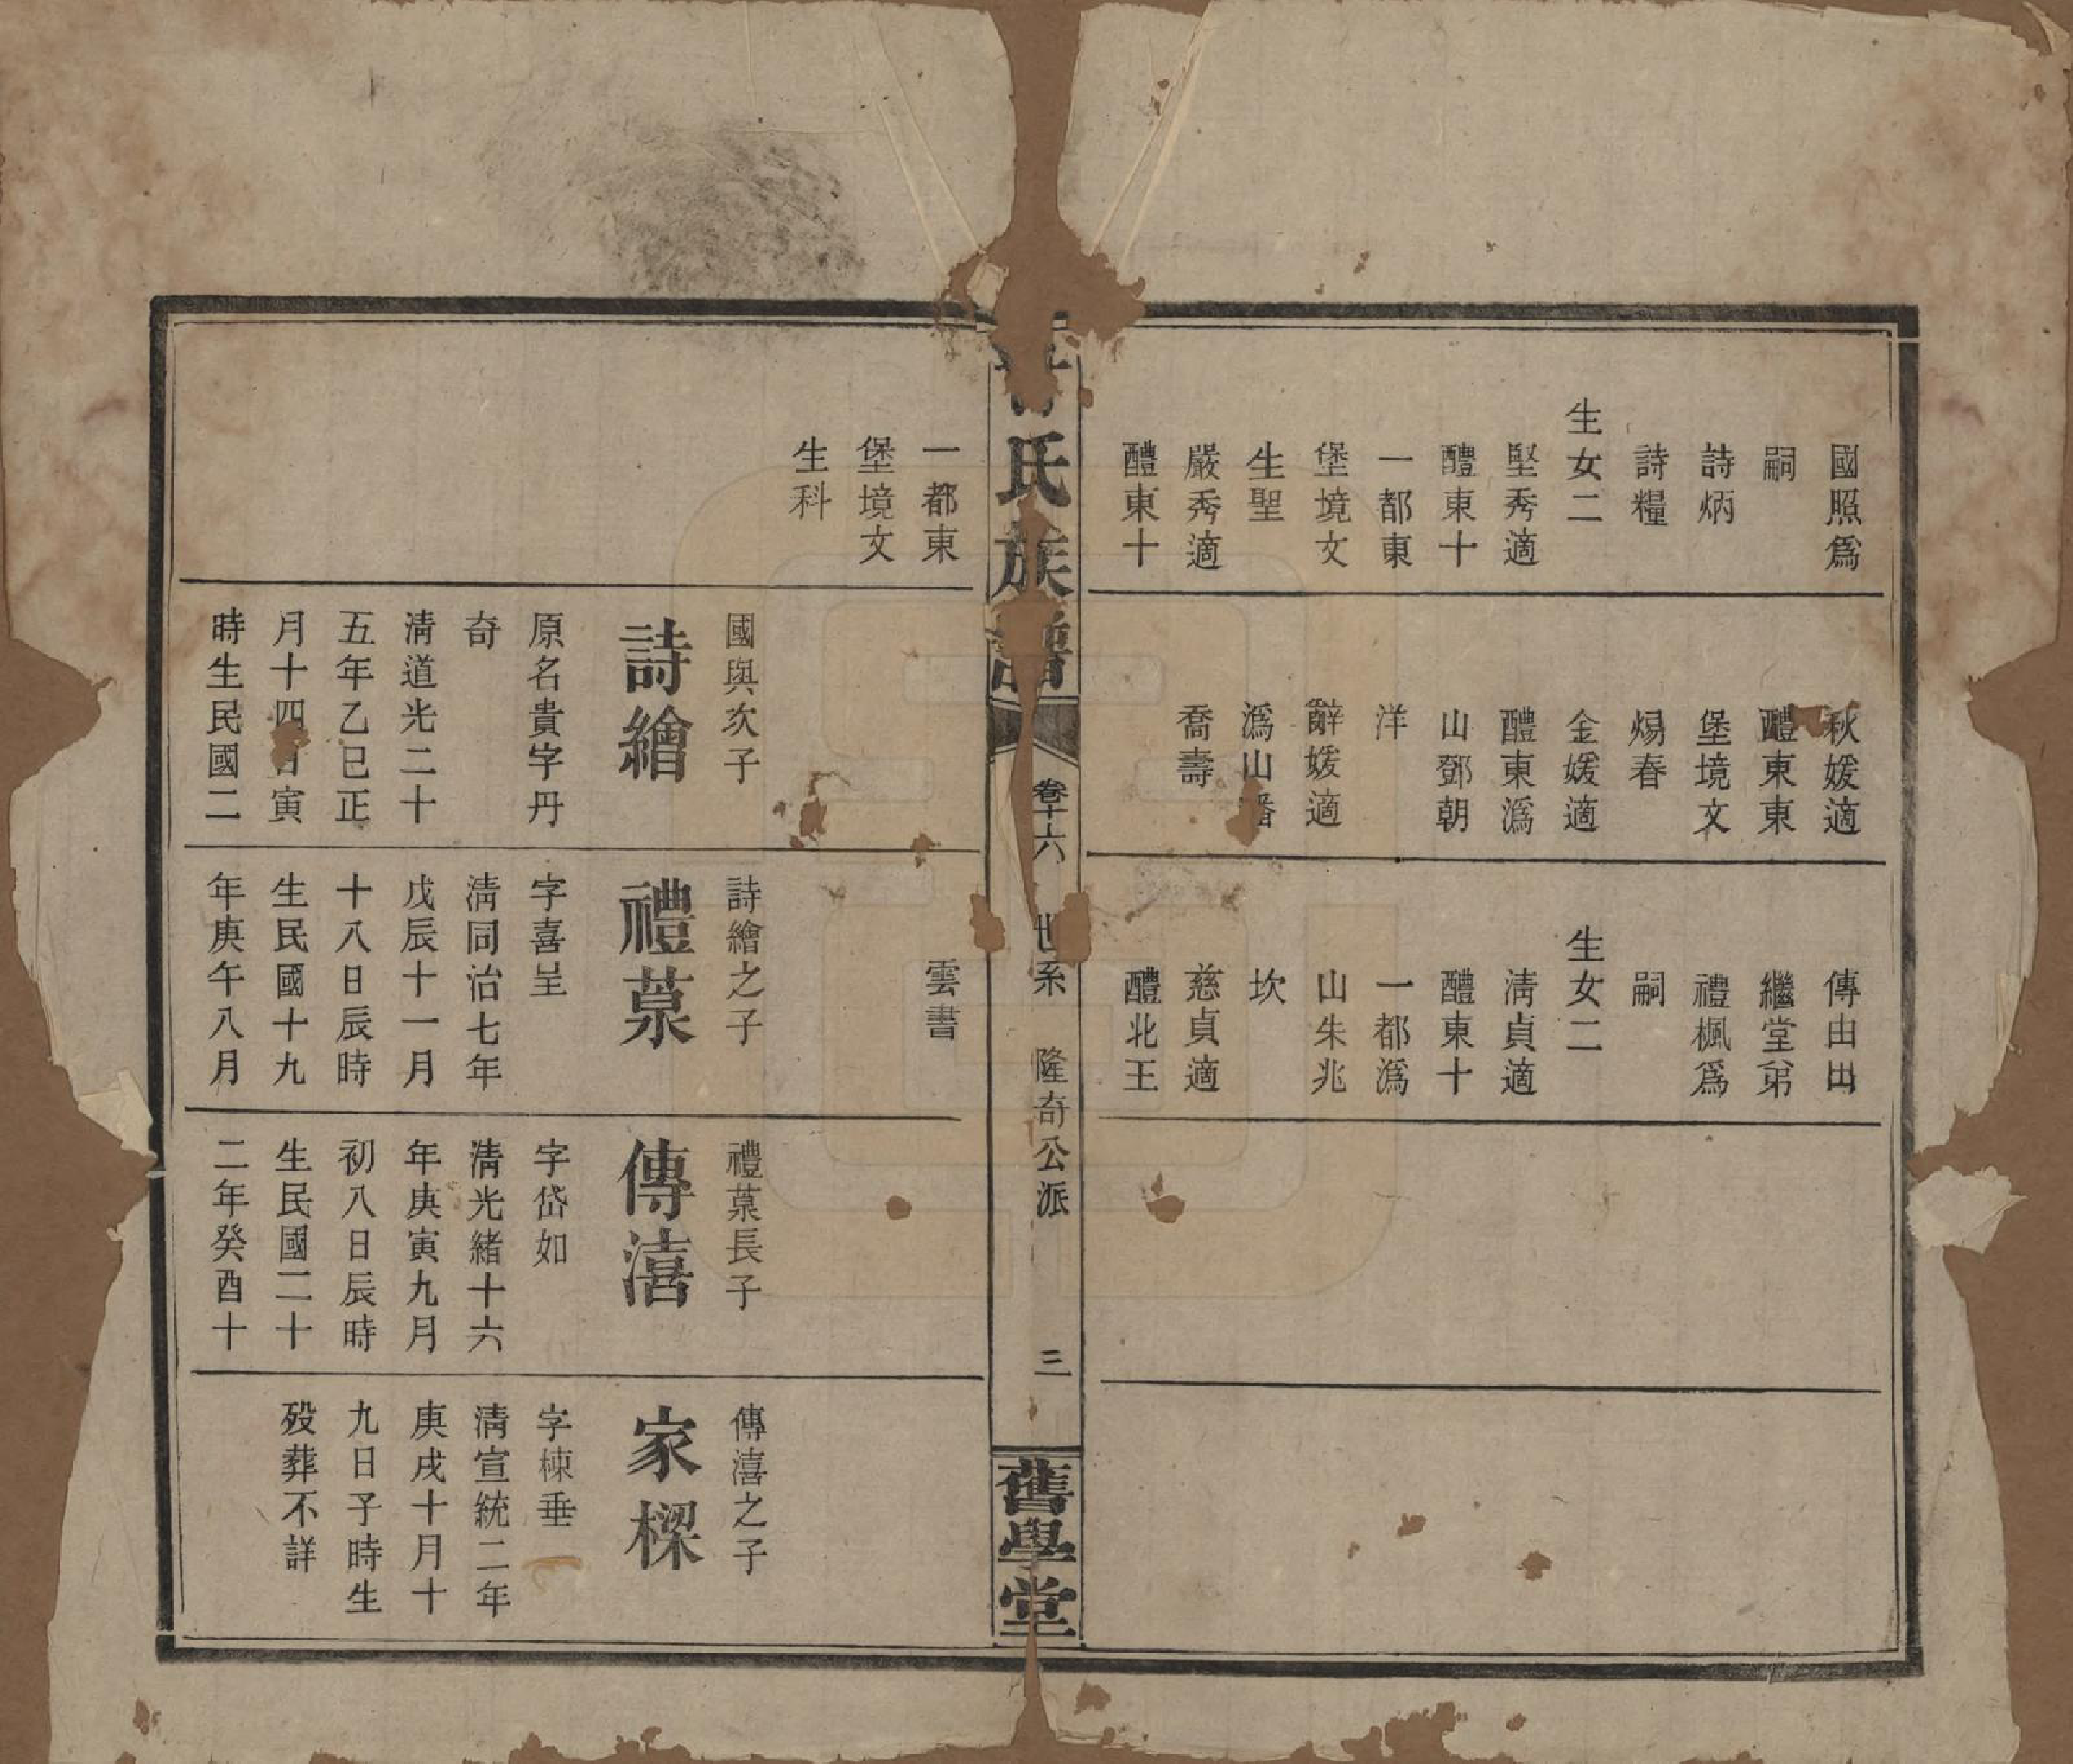 國照爲
嗣
詩炳
詩糧
生女二
堅秀適
醴東十
一都東
堡境文
生聖
嚴秀適
醴東十
秋媛適
醴東東
堡境文
煬春
金媛適
醴東潙
山鄧朝
洋
辭媛適
潙山
喬壽
傳由出
繼堂弟
禮楓爲
嗣
生女二
淸貞適
醴東十
一都潙
山朱兆
坎
慈貞適
醴北王
氏族譜
卷十六
世系
隆奇公派
三
舊學堂
一都東
堡境文
生科
國與次子
詩繪
原名貴字丹
奇
淸道光二十
五年乙巳正
月十四日寅
時生民國二
雲書
詩繪之子
禮菒
字喜呈
淸同治七年
戊辰十一月
十八日辰時
生民國十九
年庚午八月
禮菒長子
傳禧
字岱如
淸光緒十六
年庚寅九月
初八日辰時
生民國二十
二年癸酉十
傳禧之子
家樑
字棟垂
淸宣統二年
庚戌十月十
九日子時生
歿葬不詳